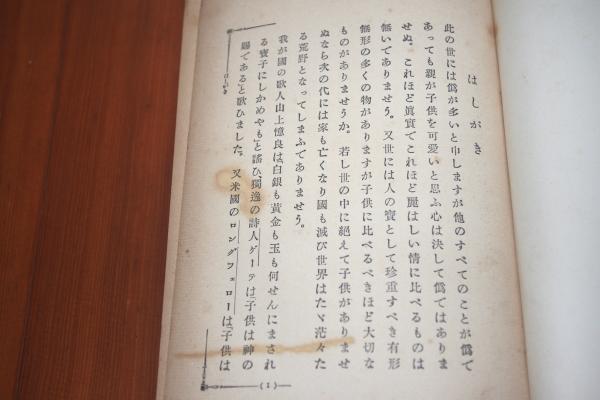 はしがき
此の世には僞が多いと申しますが他のすべてのことが僞で
あっても親が子供を可愛いと思ふ心は決して僞ではありま
せぬ。これほど眞實でこれほど麗はしい情に比べるものは
無いでありませう。又世には人の寶として珍重すべき有形
無形の多くの物がありますが子供に比べるべきほど大切な
ものがありませうか。若し世の中に絕えて子供がありませ
ぬなら次の代には家も亡くなり國も滅び世界はたヾ茫々た
る荒野となってしまふでありませう。
我が國の歌人山上憶良は、白銀も黃金も玉も何せんにまされ
る寶子にしかめやも」と謠ひ、獨逸の詩人ゲーテは「子供は神の
賜である」と歌ひました。又米國のロングフェローは「子供は
はしがき
(1)